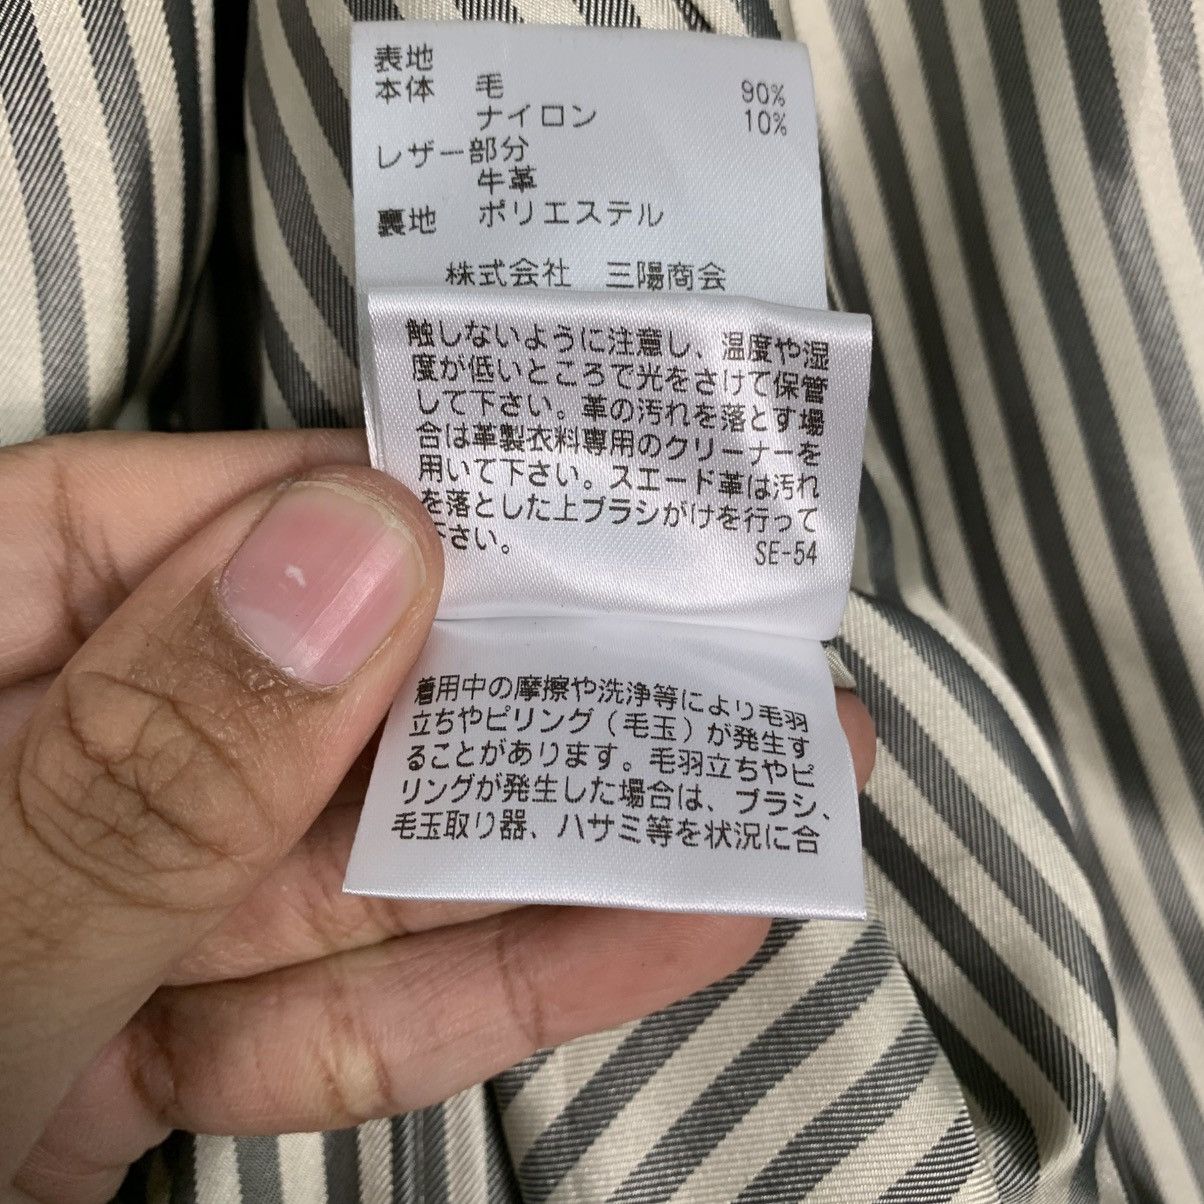 表地
本体 毛 90%
ナイロン 10%
レザー部分
牛革
裏地 ポリエステル
株式会社 三陽商会
触しないように注意し、温度や湿
度が低いところで光をさけて保管
して下さい。革の汚れを落とす場
合は革製衣料専用のクリーナーを
用いて下さい。スエード革は汚れ
を落とした上ブラシがけを行って
下さい。 SE-54
着用中の摩擦や洗浄等により毛羽
立ちやピリング(毛玉)が発生す
ることがあります。毛羽立ちやピ
リングが発生した場合は、ブラシ、
毛玉取り器、ハサミ等を状況に合